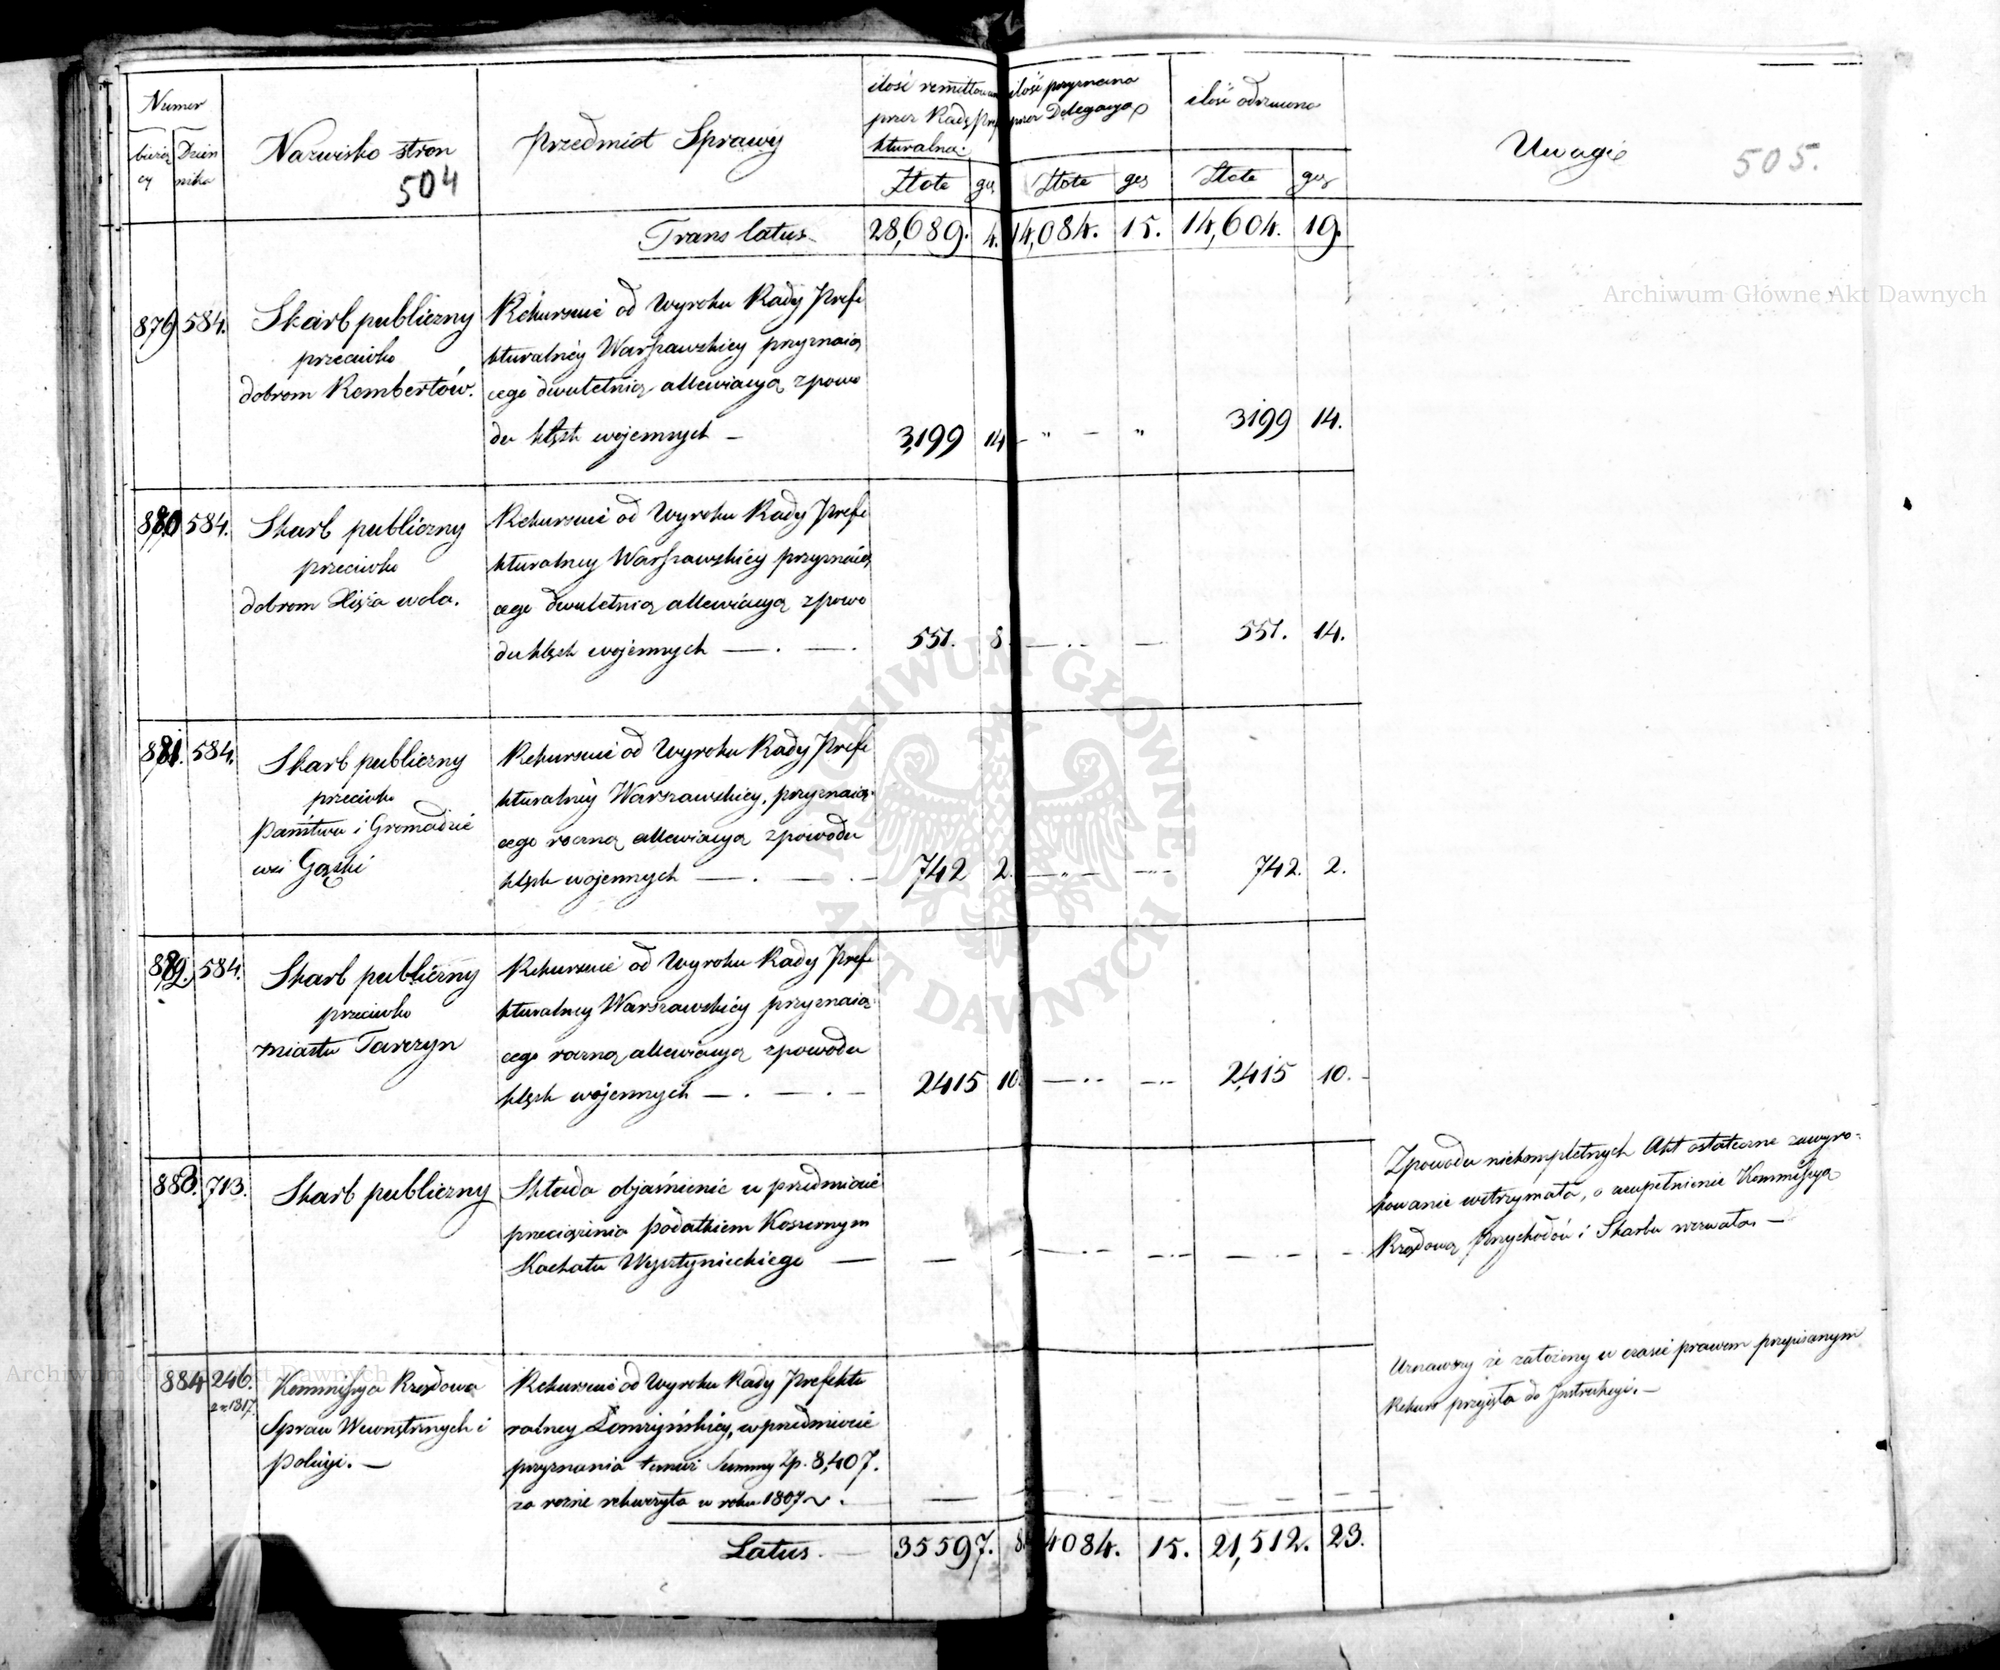 Numer
bieżą
cy
Dzien
nika
Nazwisko stron
504
Przedmiot Sprawy
ilość remittowana
przez Radę Pref
kturalną.
Złote
gr.
ilość przyznana
przez Delegacyą
Złote
grs
ilość odrzucona
Złote
grs
Uwagi
505.
Translatus
28,689. 4. 14,084. 15. 14,604. 19.
Archiwum Główne Akt Dawnych
879 584. Skarb publiczny
przeciwko
dobrom Rembertów.
Rekursuie od Wyroku Rady Prefe
kturalnéy Warszawskiey przyznaią
cego dwuletnią allewiacyą z powo
du klęsk wojennych –
3,199 14 – „ – „ 3199 14.
880 584. Skarb publiczny
przeciwko
dobrom Wola.
Rekursuie od Wyroku Rady Prefe
kturalney Warszawskiéy przyznaią
cego dwuletnią allewiacyą z powo
du klęsk wojennych — . —.
551. 8. 551. 14.
881. 584. Skarb publiczny
przeciwko
Państwu i Gromadzie
wsi Gąski
Rekursuie od Wyroku Rady Prefe
kturalnéy Warszawskiey, przyznaią
cego roczną allewiacyą z powodu
klęsk wojennych — . — . —
742 2. 742. 2.
882. 584. Skarb publiczny
przeciwko
miastu Tarczyn
Rekursuie od Wyroku Rady Prefe
kturalney Warszawskiéy przyznaią
cego roczną allewiacyą z powodu
klęsk wojennych — . — . —
2415 10. 2,415 10.
883. 713. Skarb publiczny
Składa objaśnienie w przedmiocie
przeciążenia podatkiem Koszernym
Kachału Wysztynieckiego —
Z powodu niekompletnych Akt ostateczne zawyro-
kowanie wstrzymała, o uzupełnienie Kommissyą
Rządową Przychodów i Skarbu wezwała. —
884 246.
z r. 1817.
Kommissya Rządowa
Spraw Wewnętrznych i
Policyi. —
Rekursuie od Wyroku Rady Prefektu
ralney Łomżyńskiey, w przedmiocie
przyznania Summy Zp. 8,407.
za rekwizyta w roku 1807
Uznawszy że założony w czasie prawem przepisanym
Rekurs przyjęła do Instrukcyi. —
Latus. —
35597. 8. 14084. 15. 21,512. 23.
Archiwum Główne Akt Dawnych
ARCHIWUM GŁÓWNE
AKT DAWNYCH